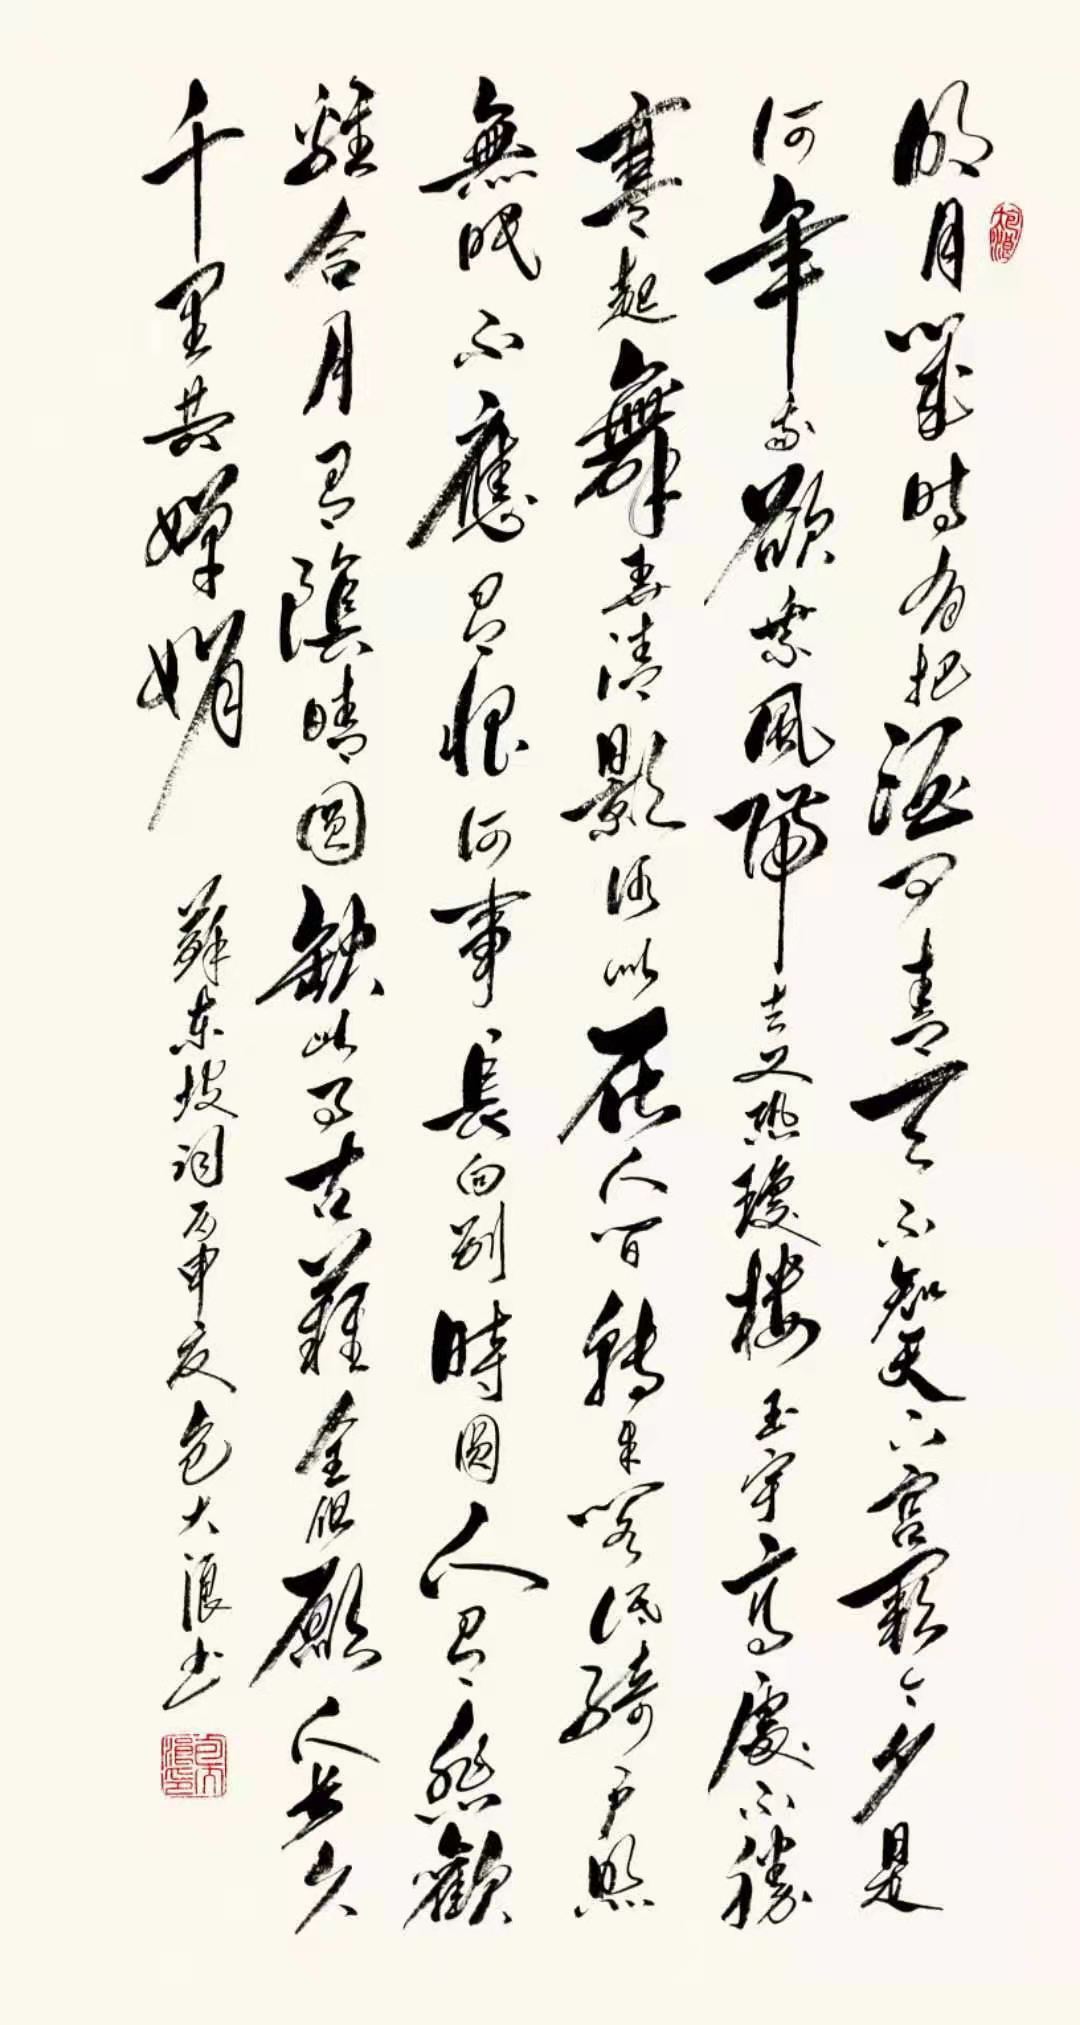 明月幾時有把酒問青天不知天上宮闕今夕是
何年我欲乘風歸去又恐瓊樓玉宇高處不勝
寒起舞弄清影何似在人間轉朱閣低綺户照
無眠不應有恨何事長向别時圓人有悲歡
離合月有陰晴圓缺此事古難全但願人長久
千里共嬋娟
蘇東坡詞丙申夏包大浪书